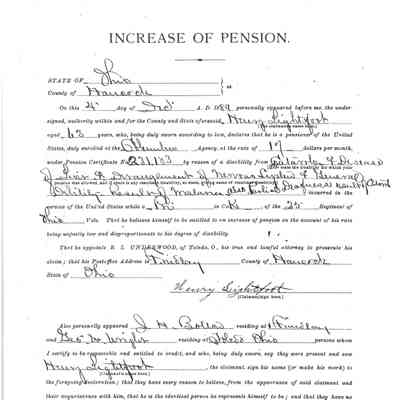 INCREASE OF PENSION.
STATE OF Ohio
County of Hancock } ss
On this 4" day of Oct A. D. 1889 personally appeared before me, the under-
signed, authority within and for the County and State aforesaid Henry Lightfoot
aged 63 years, who, being duly sworn according to law, declares that he is a pensioner of the United
States, duly enrolled at the Columbus Agency, at the rate of dollars per month,
under Pension Certificate No. by reason of a disability from Catarrh & Disease
of Liver & Derangement of Nervous System & General
Debility Resulting Malaria also incurred in the
service of the United States while a in Co of the 25" Regiment of
Ohio Vols. That he believes himself to be entitled to an increase of pension on the account of his rate
being unjustly low and disproportionate to his degree of disability.
That he appoints R. I. UNDERWOOD, of Toledo, O., his true and lawful attorney to prosecute his
claim; that his Post-office Address is Findlay County of Hancock
State of Ohio
Henry Lightfoot
(Claimant sign here.)
Also personally appeared J H Bolton residing at Findlay
and Geo. W. Wright residing at Toledo Ohio persons whom
I certify to be responsible and entitled to credit, and who, being duly sworn, say they were present and saw
Henry Lightfoot the claimant sign his name (or make his mark) to the
foregoing declaration; that they have every reason to believe, from the appearance of said claimant and
their acquaintance with him, that he is the identical person he represents himself to be; and that they have no